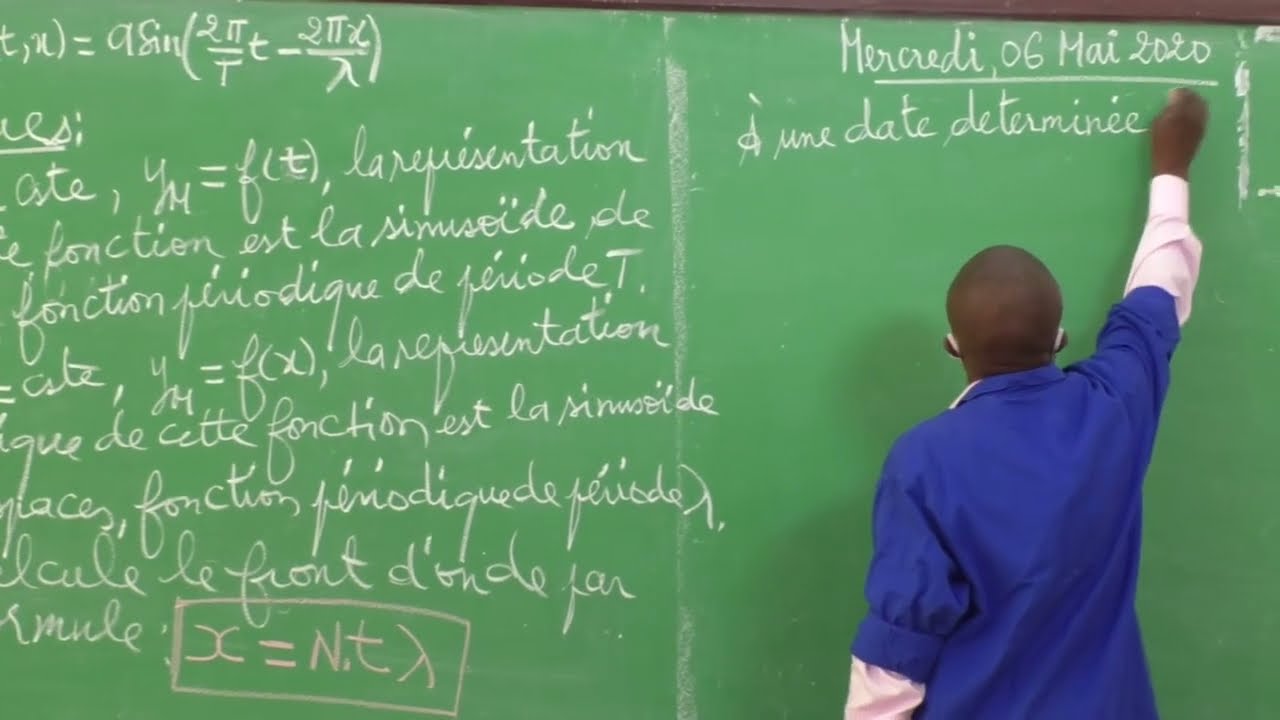 t,x) = a sin(2π/T t - 2πx/λ)
ques:
cste, yM = f(t), la représentation
fonction est la sinusoïde de
fonction périodique de période T.
= cste, yM = f(x), la representation
ique de cette fonction est la sinusoïde
spaces, fonction périodique de période λ.
lcule le front d'onde par
rmule:
x = N.t λ
Mercredi, 06 Mai 2020
À une date determinée